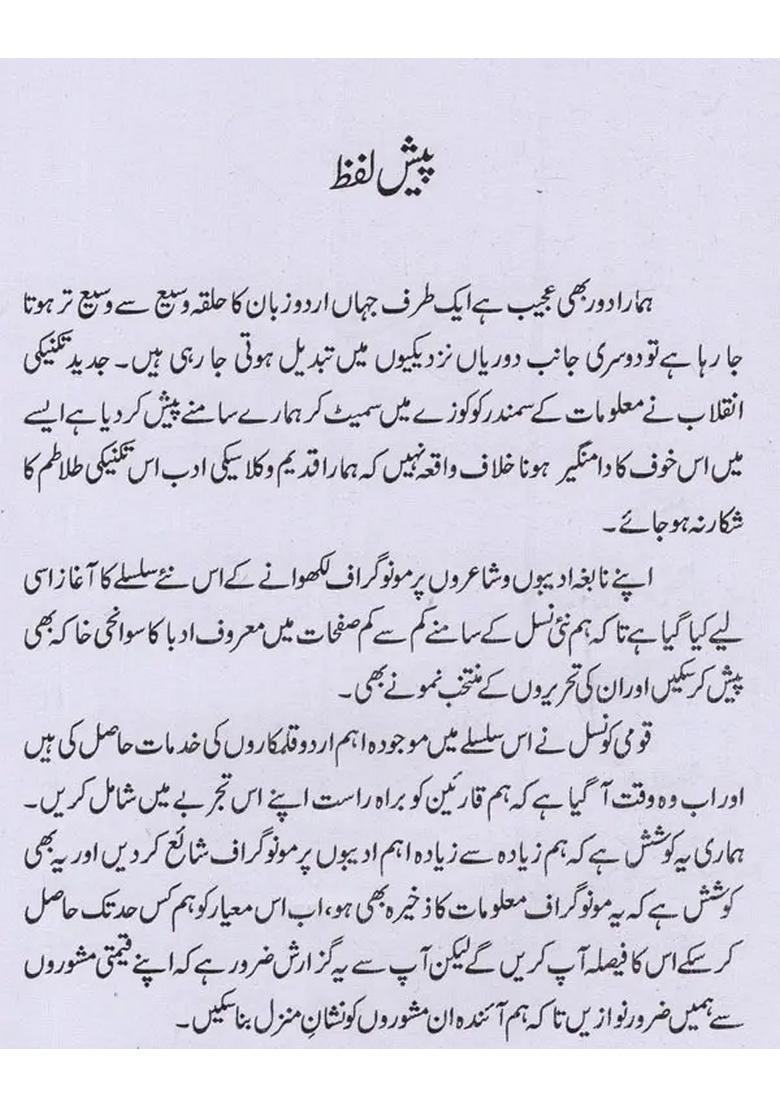 پیش لفظ
ہمارا دور بھی عجیب ہے ایک طرف جہاں اردو زبان کا حلقہ وسیع سے وسیع تر ہوتا
جا رہا ہے تو دوسری جانب دوریاں نزدیکیوں میں تبدیل ہوتی جا رہی ہیں۔ جدید تکنیکی
انقلاب نے معلومات کے سمندر کو کوزے میں سمیٹ کر ہمارے سامنے پیش کر دیا ہے ایسے
میں اس خوف کا دامنگیر ہونا خلاف واقعہ نہیں کہ ہمارا قدیم و کلاسیکی ادب اس تکنیکی طلاطم کا
شکار نہ ہو جائے۔
اپنے نابغہ ادیبوں و شاعروں پر مونوگراف لکھوانے کے اس نئے سلسلے کا آغاز اسی
لیے کیا گیا ہے تاکہ ہم نئی نسل کے سامنے کم سے کم صفحات میں معروف ادبا کا سوانحی خاکہ بھی
پیش کر سکیں اور ان کی تحریروں کے منتخب نمونے بھی۔
قومی کونسل نے اس سلسلے میں موجودہ اہم اردو قلمکاروں کی خدمات حاصل کی ہیں
اور اب وہ وقت آ گیا ہے کہ ہم قارئین کو براہ راست اپنے اس تجربے میں شامل کریں۔
ہماری یہ کوشش ہے کہ ہم زیادہ سے زیادہ اہم ادیبوں پر مونوگراف شائع کر دیں اور یہ بھی
کوشش ہے کہ یہ مونوگراف معلومات کا ذخیرہ بھی ہو، اب اس معیار کو ہم کس حد تک حاصل
کر سکے اس کا فیصلہ آپ کریں گے لیکن آپ سے یہ گزارش ضرور ہے کہ اپنے قیمتی مشوروں
سے ہمیں ضرور نوازیں تاکہ ہم آئندہ ان مشوروں کو نشانِ منزل بنا سکیں۔